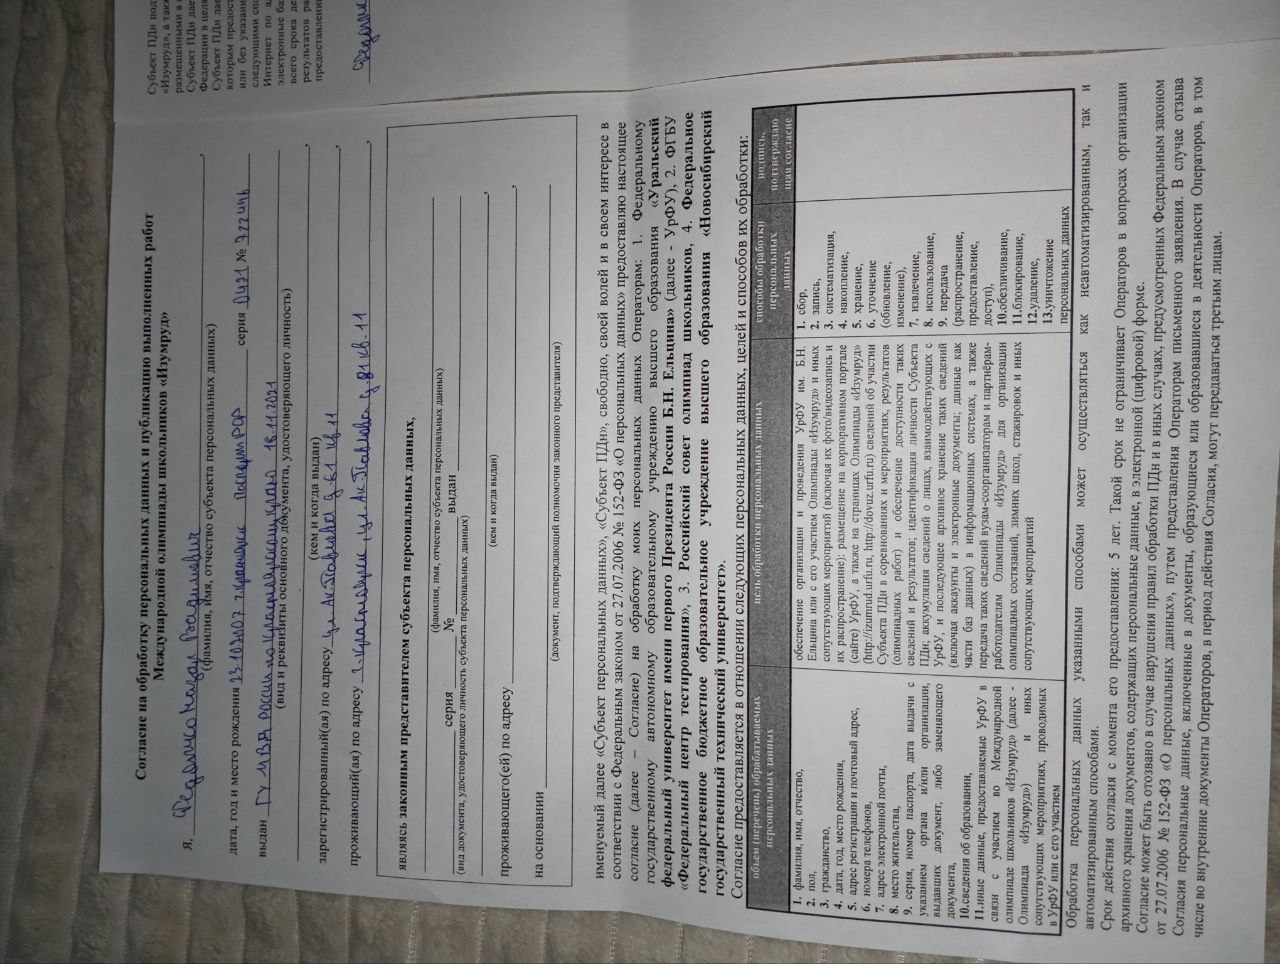 Согласие на обработку персональных данных и публикацию выполненных работ
Международной олимпиады школьников «Изумруд»
Я, Назар Вадимович
(фамилия, имя, отчество субъекта персональных данных)
дата, год и место рождения 23.10.2007 г.Красноярск Паспорт РФ серия 0421 №
выдан ГУ МВД России по Красноярскому краю 18.11.2021
(вид и реквизиты основного документа, удостоверяющего личность)
(кем и когда выдан)
зарегистрированный(ая) по адресу ул. Ак.Павлова д. кв 11
проживающий(ая) по адресу г.Красноярск, ул. Ак.Павлова д. 81 кв. 11
являясь законным представителем субъекта персональных данных,
(фамилия, имя, отчество субъекта персональных данных)
серия № выдан
(вид документа, удостоверяющего личность субъекта персональных данных)
(кем и когда выдан)
проживающего(ей) по адресу
на основании
(документ, подтверждающий полномочия законного представителя)
именуемый далее «Субъект персональных данных», «Субъект ПДн», свободно, своей волей и в своем интересе в
соответствии с Федеральным законом от 27.07.2006 № 152-ФЗ «О персональных данных» предоставляю настоящее
согласие (далее – Согласие) на обработку моих персональных данных Операторам: 1. Федеральному
государственному автономному образовательному учреждению высшего образования «Уральский
федеральный университет имени первого Президента России Б.Н. Ельцина» (далее - УрФУ), 2. ФГБУ
«Федеральный центр тестирования», 3. Российский совет олимпиад школьников, 4. Федеральное
государственное бюджетное образовательное учреждение высшего образования «Новосибирский
государственный технический университет».
Согласие предоставляется в отношении следующих персональных данных, целей и способов их обработки:
объем (перечень) обрабатываемых
персональных данных
цель обработки персональных данных
способы обработки
персональных
данных
подпись,
подтверждаю
щая согласие
1. фамилия, имя, отчество,
2. пол,
3. гражданство,
4. дата, год, место рождения,
5. адрес регистрации и почтовый адрес,
6. номера телефонов,
7. адрес электронной почты,
8. место жительства,
9. серия, номер паспорта, дата выдачи с
указанием органа и/или организации,
выдавших документ, либо заменяющего
документа,
10.сведения об образовании,
11.иные данные, предоставляемые УрФУ в
связи с участием во Международной
олимпиаде школьников «Изумруд» (далее -
Олимпиада «Изумруд») и иных
сопутствующих мероприятиях, проводимых
в УрФУ или с его участием
обеспечение организации и проведения УрФУ им. Б.Н.
Ельцина или с его участием Олимпиады «Изумруд» и иных
сопутствующих мероприятий (включая их фото/видеозапись и
их распространение): размещение на корпоративном портале
(сайте) УрФУ, а также на страницах Олимпиады «Изумруд»
(http://izumrud.urfu.ru, http://dovuz.urfu.ru) сведений об участии
Субъекта ПДн в соревнованиях и мероприятиях, результатов
(олимпиадных работ) и обеспечение доступности таких
сведений и результатов; идентификация личности Субъекта
ПДн; аккумуляция сведений о лицах, взаимодействующих с
УрФУ, и последующее архивное хранение таких сведений
(включая аккаунты и электронные документы; данные как
части баз данных) в информационных системах, а также
передача таких сведений вузам-соорганизаторам и партнёрам-
работодателям Олимпиады «Изумруд» для организации
олимпиадных состязаний, зимних школ, стажировок и иных
сопутствующих мероприятий
1. сбор,
2. запись,
3. систематизация,
4. накопление,
5. хранение,
6. уточнение
(обновление,
изменение),
7. извлечение,
8. использование,
9. передача
(распространение,
предоставление,
доступ),
10.обезличивание,
11.блокирование,
12.удаление,
13.уничтожение
персональных данных
Обработка персональных данных указанными способами может осуществляться как неавтоматизированным, так и
автоматизированным способами.
Срок действия согласия с момента его предоставления: 5 лет. Такой срок не ограничивает Операторов в вопросах организации
архивного хранения документов, содержащих персональные данные, в электронной (цифровой) форме.
Согласие может быть отозвано в случае нарушения правил обработки ПДн и в иных случаях, предусмотренных Федеральным законом
от 27.07.2006 № 152-ФЗ «О персональных данных», путем представления Операторам письменного заявления. В случае отзыва
Согласия персональные данные, включенные в документы, образующиеся или образовавшиеся в деятельности Операторов, в том
числе во внутренние документы Операторов, в период действия Согласия, могут передаваться третьим лицам.
Субъект ПДн под
«Изумруд», а такж
размещенными в
Субъект ПДн дае
Федерации в целя
Субъект ПДн дас
которым предост
или без указани
следующими спо
Интернет по а
электронные ба
всего срока де
результатов ра
предоставлени